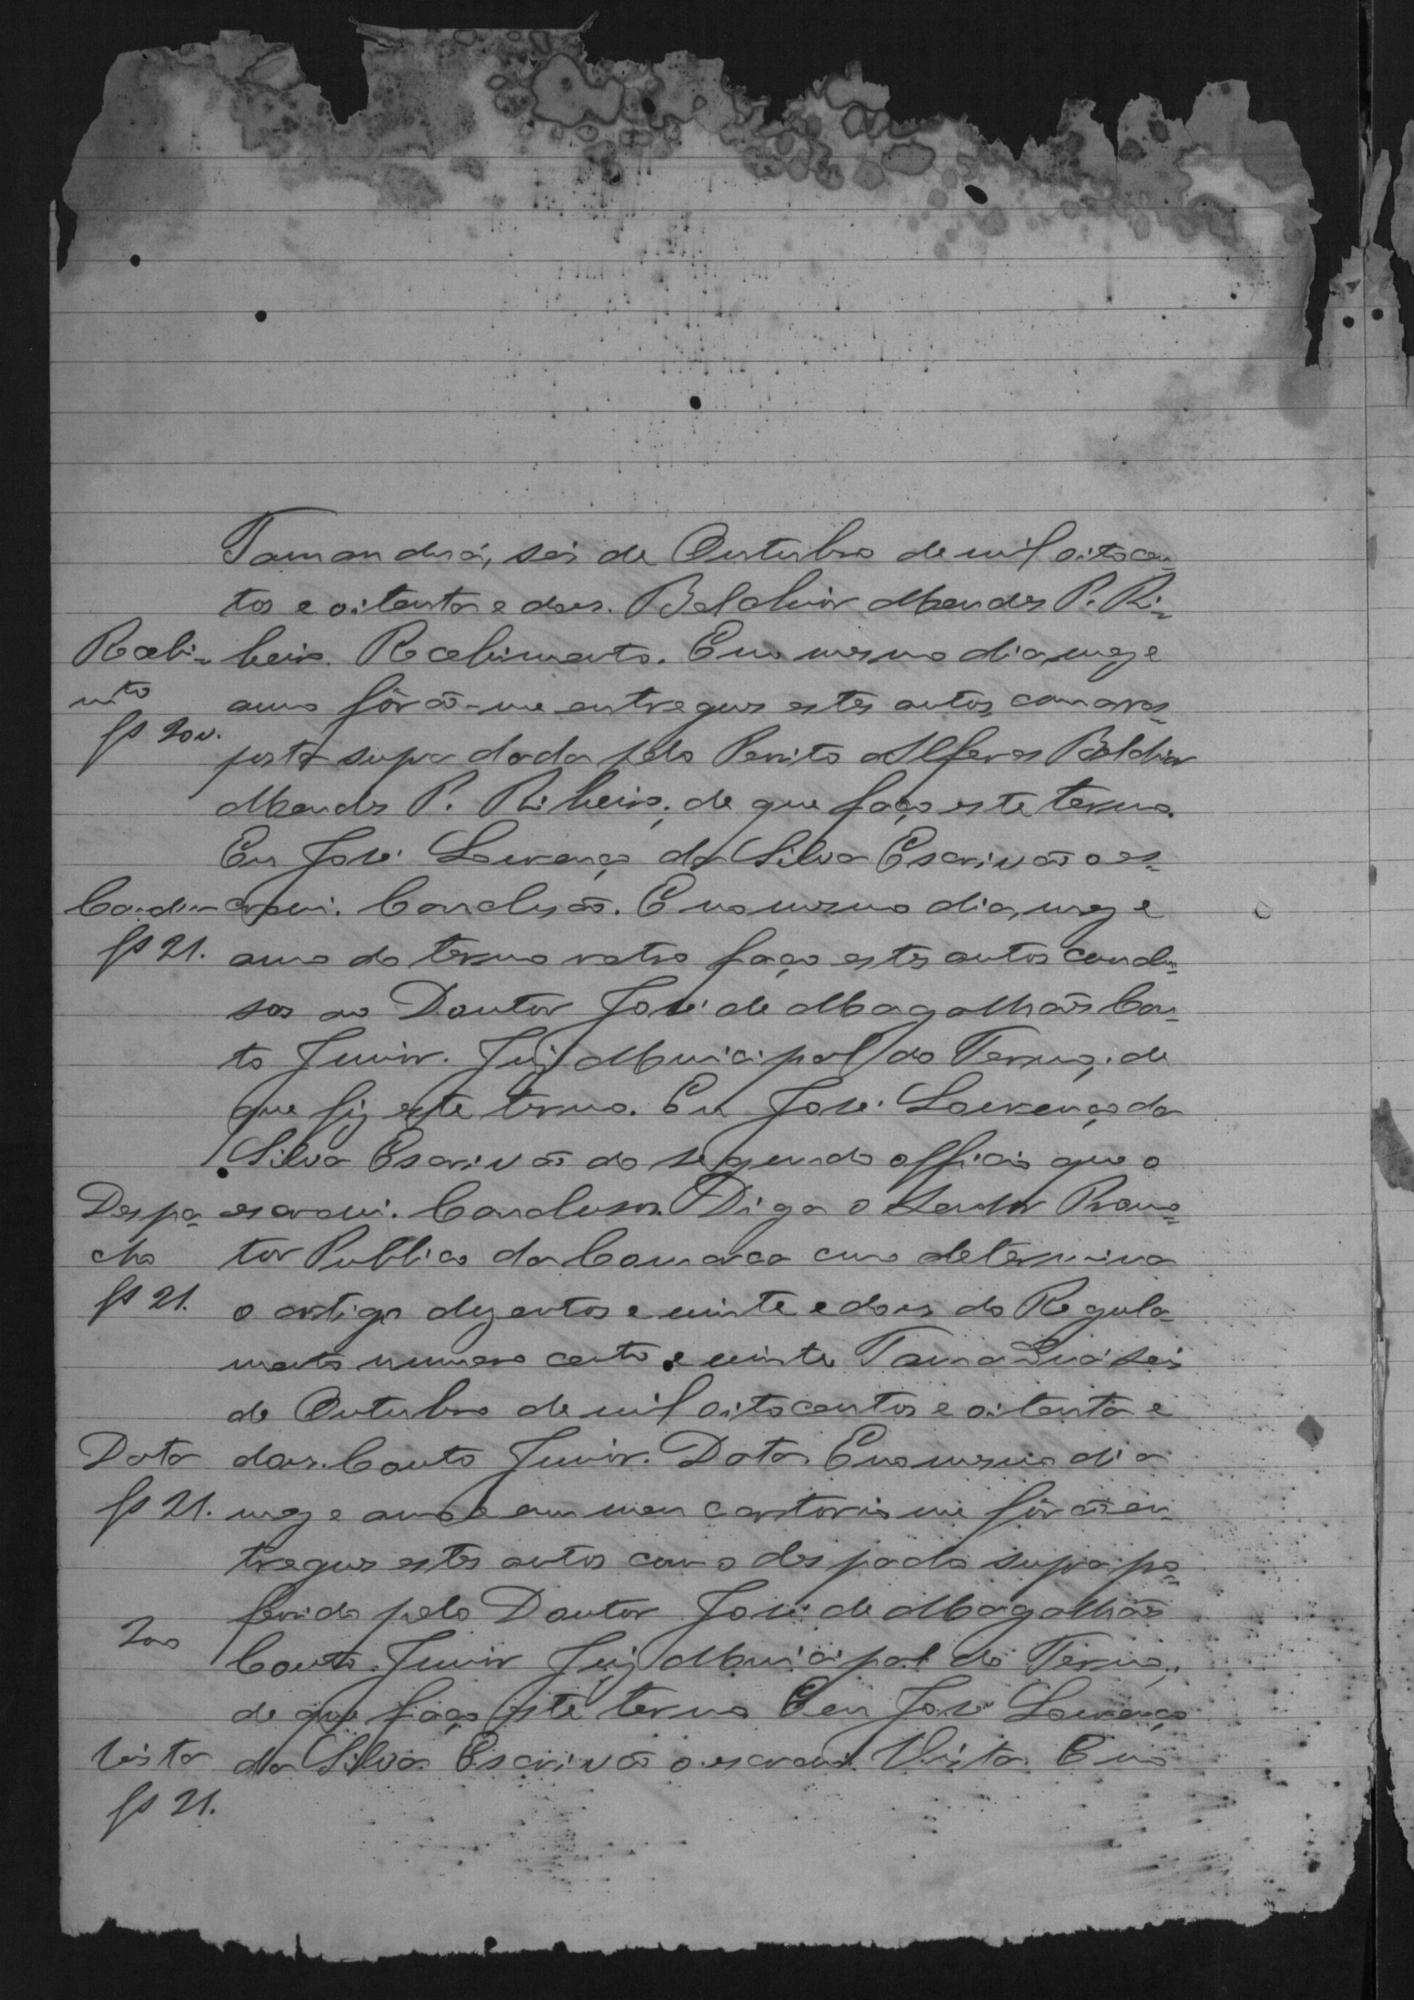 Tamanduá, seis de Outubro de mil oitocen-
tos e oitenta e dous. Belchior Mendes P. Ri-
Recebi- beiro. Recebimento. E no mesmo dia, mez e
mto anno fôrão-me entregues estes autos com a res-
fs 20v. posta supra dada pelo Perito Alferes Belchior
Mendes P. Ribeiro; de que faço este termo.
Eu José Lourenço da Silva Escrivão o es-
Conclu- crevi. Conclusão. E no mesmo dia, mez e
fs 21. anno do termo retro faço estes autos conclu-
sos ao Doutor José de Magalhães Cou-
to Junior. Juiz Municipal do Termo; de
que fiz este termo. Eu José Lourenço da
Silva Escrivão do segundo officio que o
Despa- escrevi. Conclusos. Diga o Doutor Promo-
cho tor Publico da Comarca como determina
fs 21. o artigo duzentos e vinte e dous do Regula-
mento numero cento e vinte Tamanduá seis
de Outubro de mil oitocentos e oitenta e
Data dous. Couto Junior. Data. E no mesmo dia
fs 21. mez e anno e em meu cartorio me fôrão en-
tregues estes autos com o despacho supra pro-
ferido pelo Doutor José de Magalhães
Couto Junior Juiz Municipal do Termo;
de que faço este termo Eu José Lourenço
Vista da Silva Escrivão o escrevi. Vista. E no
fs 21.